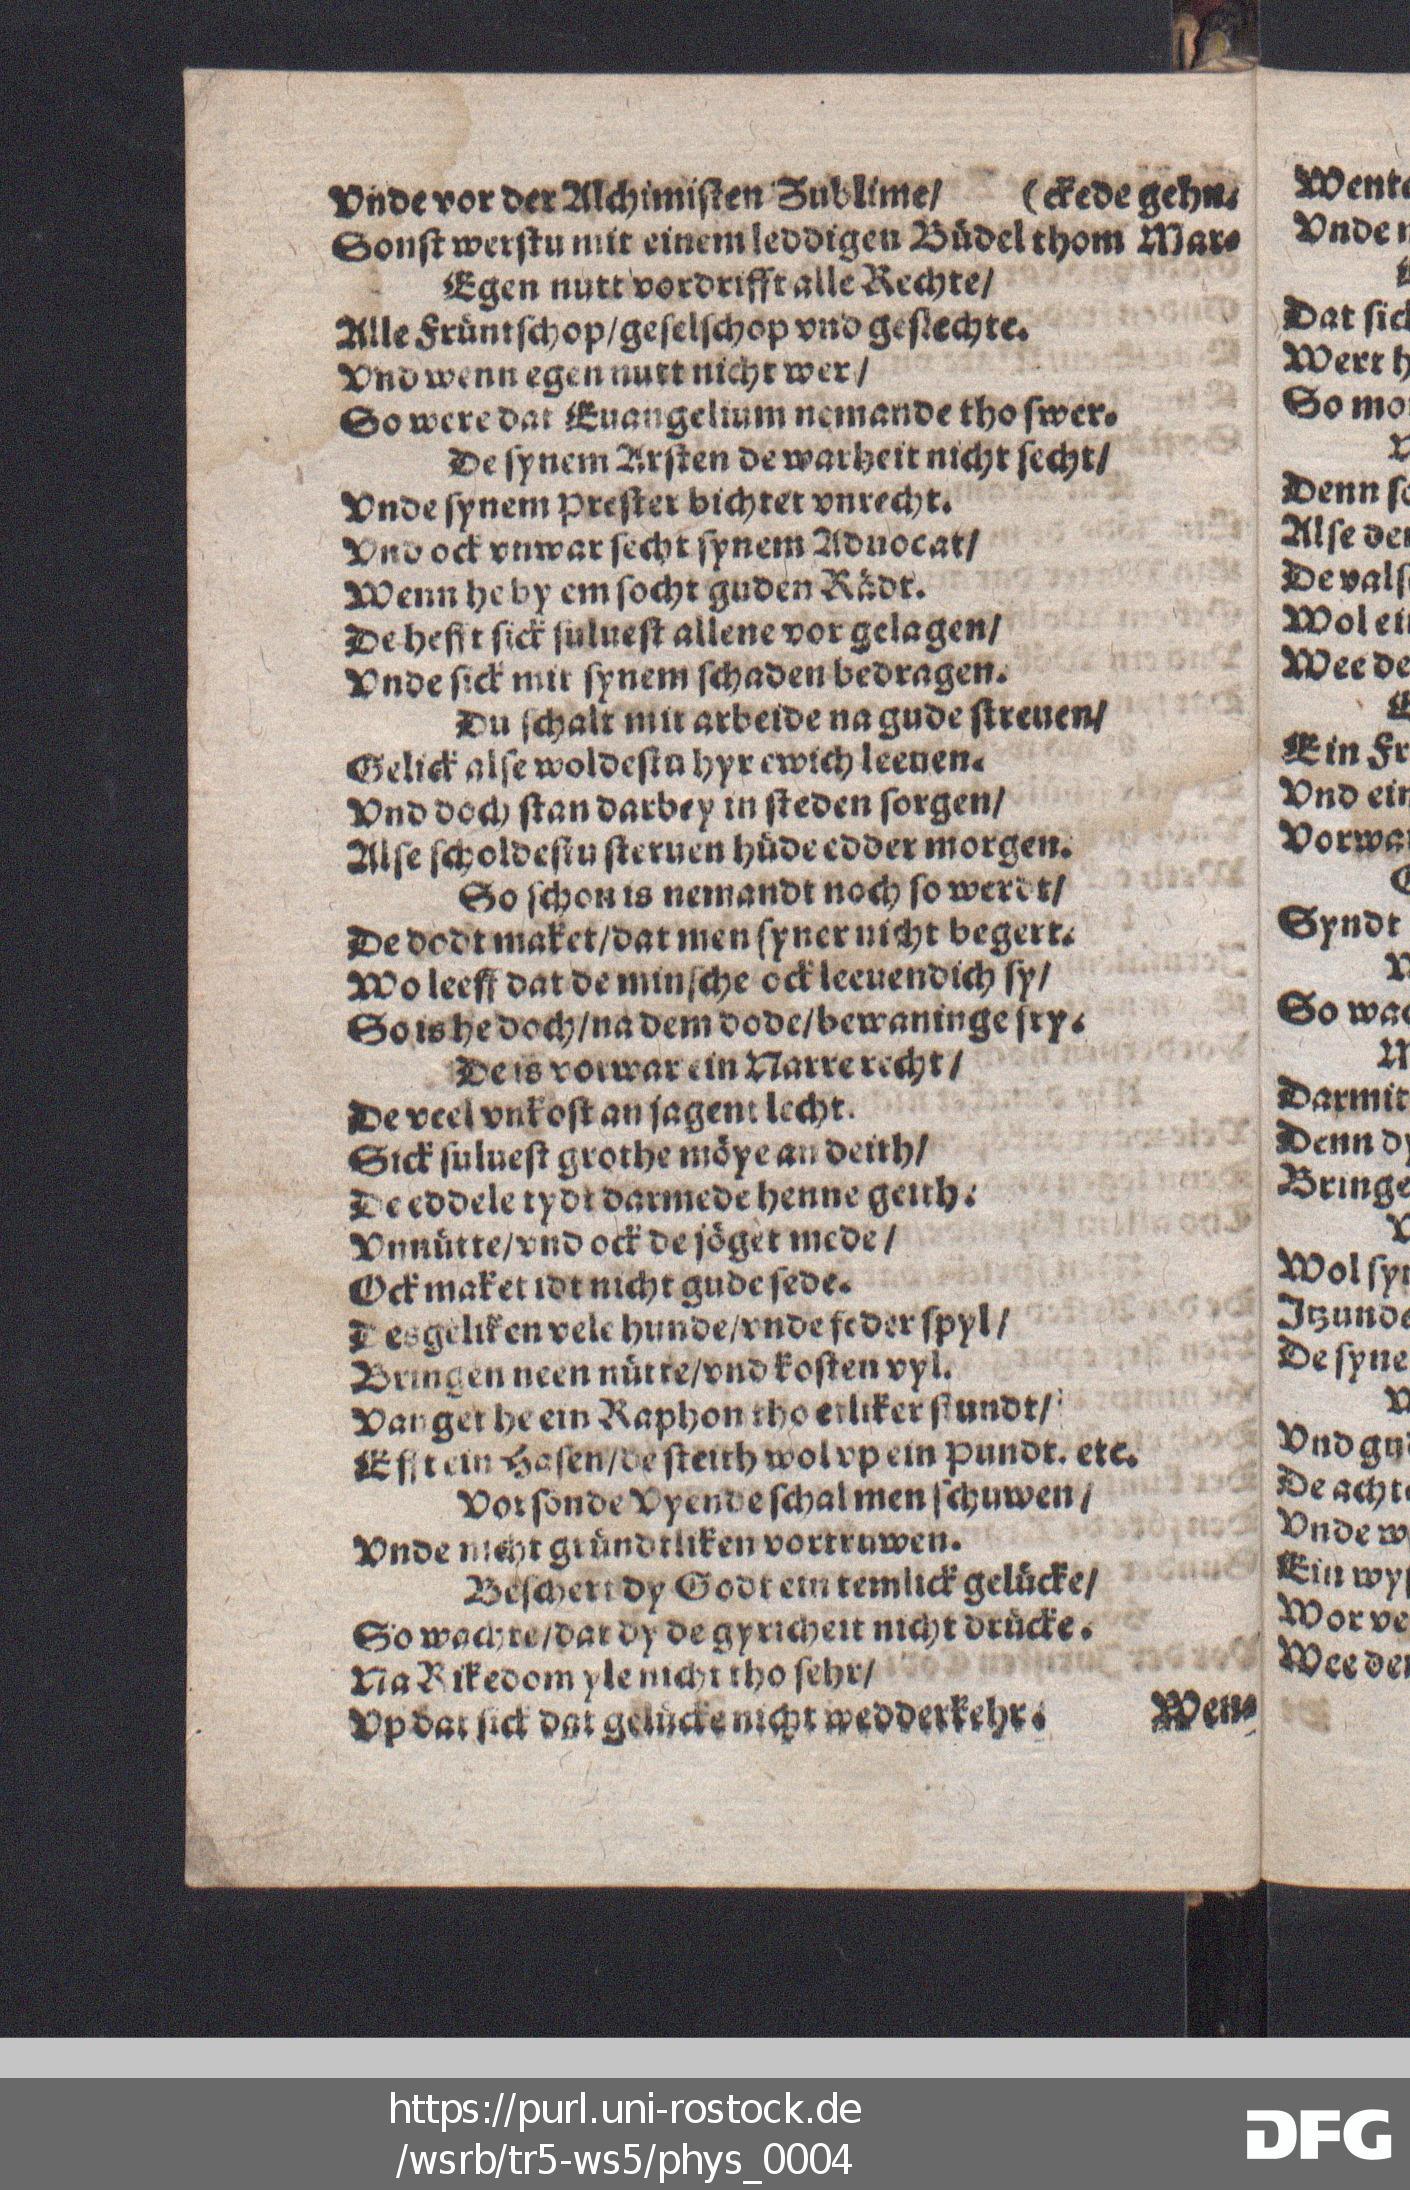 Vnde vor der Alchimisten Sublime/ (ckede gehn.
Sonst werstu mit einem leddigen Büdel thom Mar-
Egen nutt vordrifft alle Rechte/
Alle Früntschop/geselschop vnd geslechte.
Vnd wenn egen nutt nicht wer/
So were dat Euangelium nemande tho swer.
De synem Arsten de warheit nicht secht/
Vnde synem Prester bichtet vnrecht.
Vnd ock vnwar secht synem Aduocat/
Wenn he by em socht guden Rädt.
De hefft sick suluest allene vor gelagen/
Vnde sick mit synem schaden bedragen.
Du schalt mit arbeide na gude streuen/
Gelick alse woldestu hyr ewich leeuen.
Vnd doch stan darbey in steden sorgen/
Alse scholdestu steruen hüde edder morgen.
So schon is nemandt noch so werdt/
De dodt maket/dat men syner nicht begert.
Wo leeff dat de minsche ock leeuendich sy/
So is he doch/na dem dode/bewaninge fry.
De is vorwar ein Narre recht/
De veel vnkost an jagent lecht.
Sick suluest grothe möye an deith/
De eddele tydt darmede henne geith.
Vnnütte/vnd ock de jöget mede/
Ock maket idt nicht gude sede.
Desgeliken vele hunde/vnde feder spyl/
Bringen neen nütte/vnd kosten vyl.
Vanget he ein Raphon tho etliker stundt/
Efft ein Hasen/de steith wol vp ein Pundt. etc.
Vorsonde Vyende schal men schuwen/
Vnde nicht gründtliken vortruwen.
Beschert dy Godt ein temlick gelücke/
So wachte/dat dy de gyricheit nicht drücke.
Na Rikedom yle nicht tho sehr/
Vp dat sick dat gelücke nicht wedderkehr.
Wen-
Vnde
Dat
Wert
Denn
Alse
Wee de
Ein
Vnd
Syndt
So
Darmit
Denn dy
Itzunde
Vnd
Vnde
https://purl.uni-rostock.de
/wsrb/tr5-ws5/phys_0004
DFG